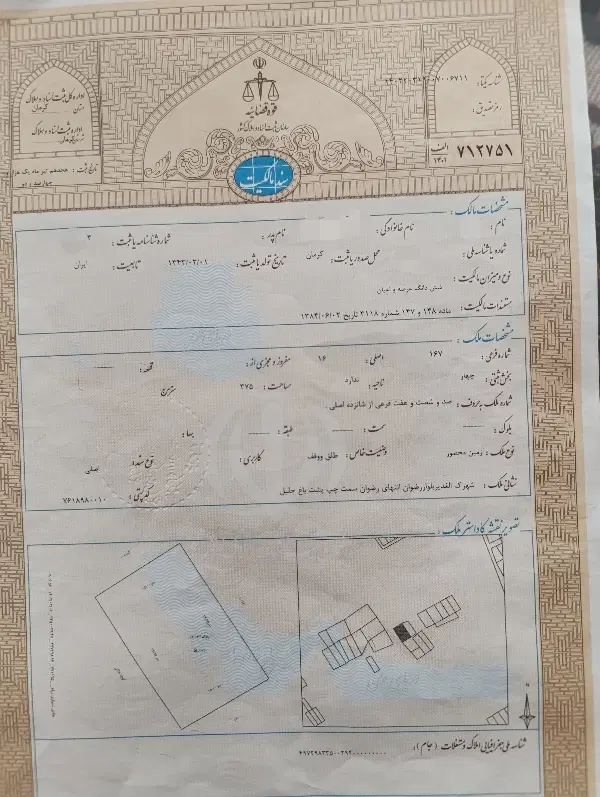 شناسه یکتا: ۱۴۰۲۲۰۳۱۲۰۰۷۰۰۶۷۱۱
رمز تصدیق:
الف ۱۴۰۱ ۷۱۲۷۵۱
قوه قضائیه
سازمان ثبت اسناد و املاک کشور
سند مالکیت
اداره کل ثبت اسناد و املاک
استان: کرمان
اداره ثبت اسناد و املاک
تاریخ ثبت: هجدهم تیر ماه یک هزار
چهارصد و دو
مشخصات مالک:
نام: نام خانوادگی: نام پدر: شماره شناسنامه یا ثبت: ۳
شماره یا شناسه ملی: محل صدور یا ثبت: کرمان تاریخ تولد یا ثبت: ۱۳۴۳/۰۲/۰۱ تابعیت: ایران
نوع و میزان مالکیت: شش دانگ عرصه و اعیان
مستندات مالکیت: ماده ۱۴۸ و ۱۴۷ شماره ۲۱۱۸ تاریخ ۱۳۸۴/۰۶/۰۲
مشخصات ملک:
شماره فرعی: ۱۶۷ اصلی: ۱۶ مفروز و مجزی از: —— قطعه: ——
بخش ثبتی: چهار ناحیه: ندارد مساحت: ۳۷۵ مترمربع
شماره ملک به حروف: صد و شصت و هفت فرعی از شانزده اصلی
بلوک: —— سمت: —— طبقه: —— پهنا:
نوع ملک: زمین محصور وضعیت خاص: طلق و وقف کاربری: نوع سند: اصلی
نشانی ملک: شهرک الغدیربلواررضوان انتهای رضوان سمت چپ پشت باغ خلیل کدپستی: ۷۶۱۸۹۸۰۰۱۰
تصویر نقشه کاداستر ملک:
شناسه ملی جغرافیایی املاک و مستغلات (جام):